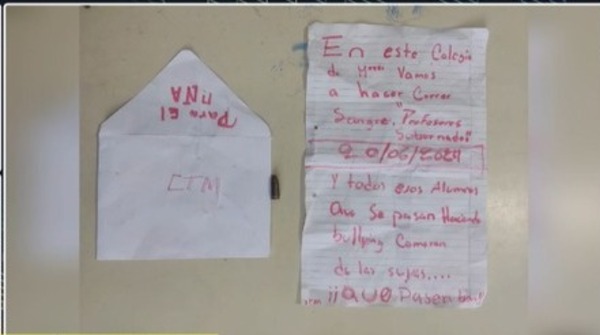 Para El
CTM
En este Colegio
de Vamos
a hacer Correr
Sangre, "Profesores
Subornados"
20/06/2024
Y todos esos Alumnos
Que Se pasan Haciendo
bullying Comeran
de las suyas....
¡¡QUE Pasen